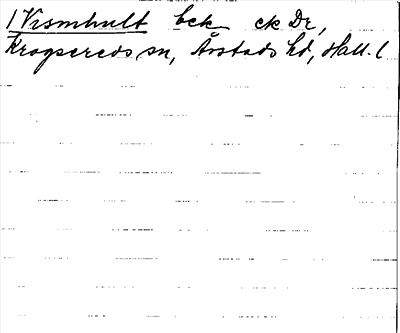 1 Vismhult bck ck Dr,
Krogsereds sn, Årstads hd, Hall. l